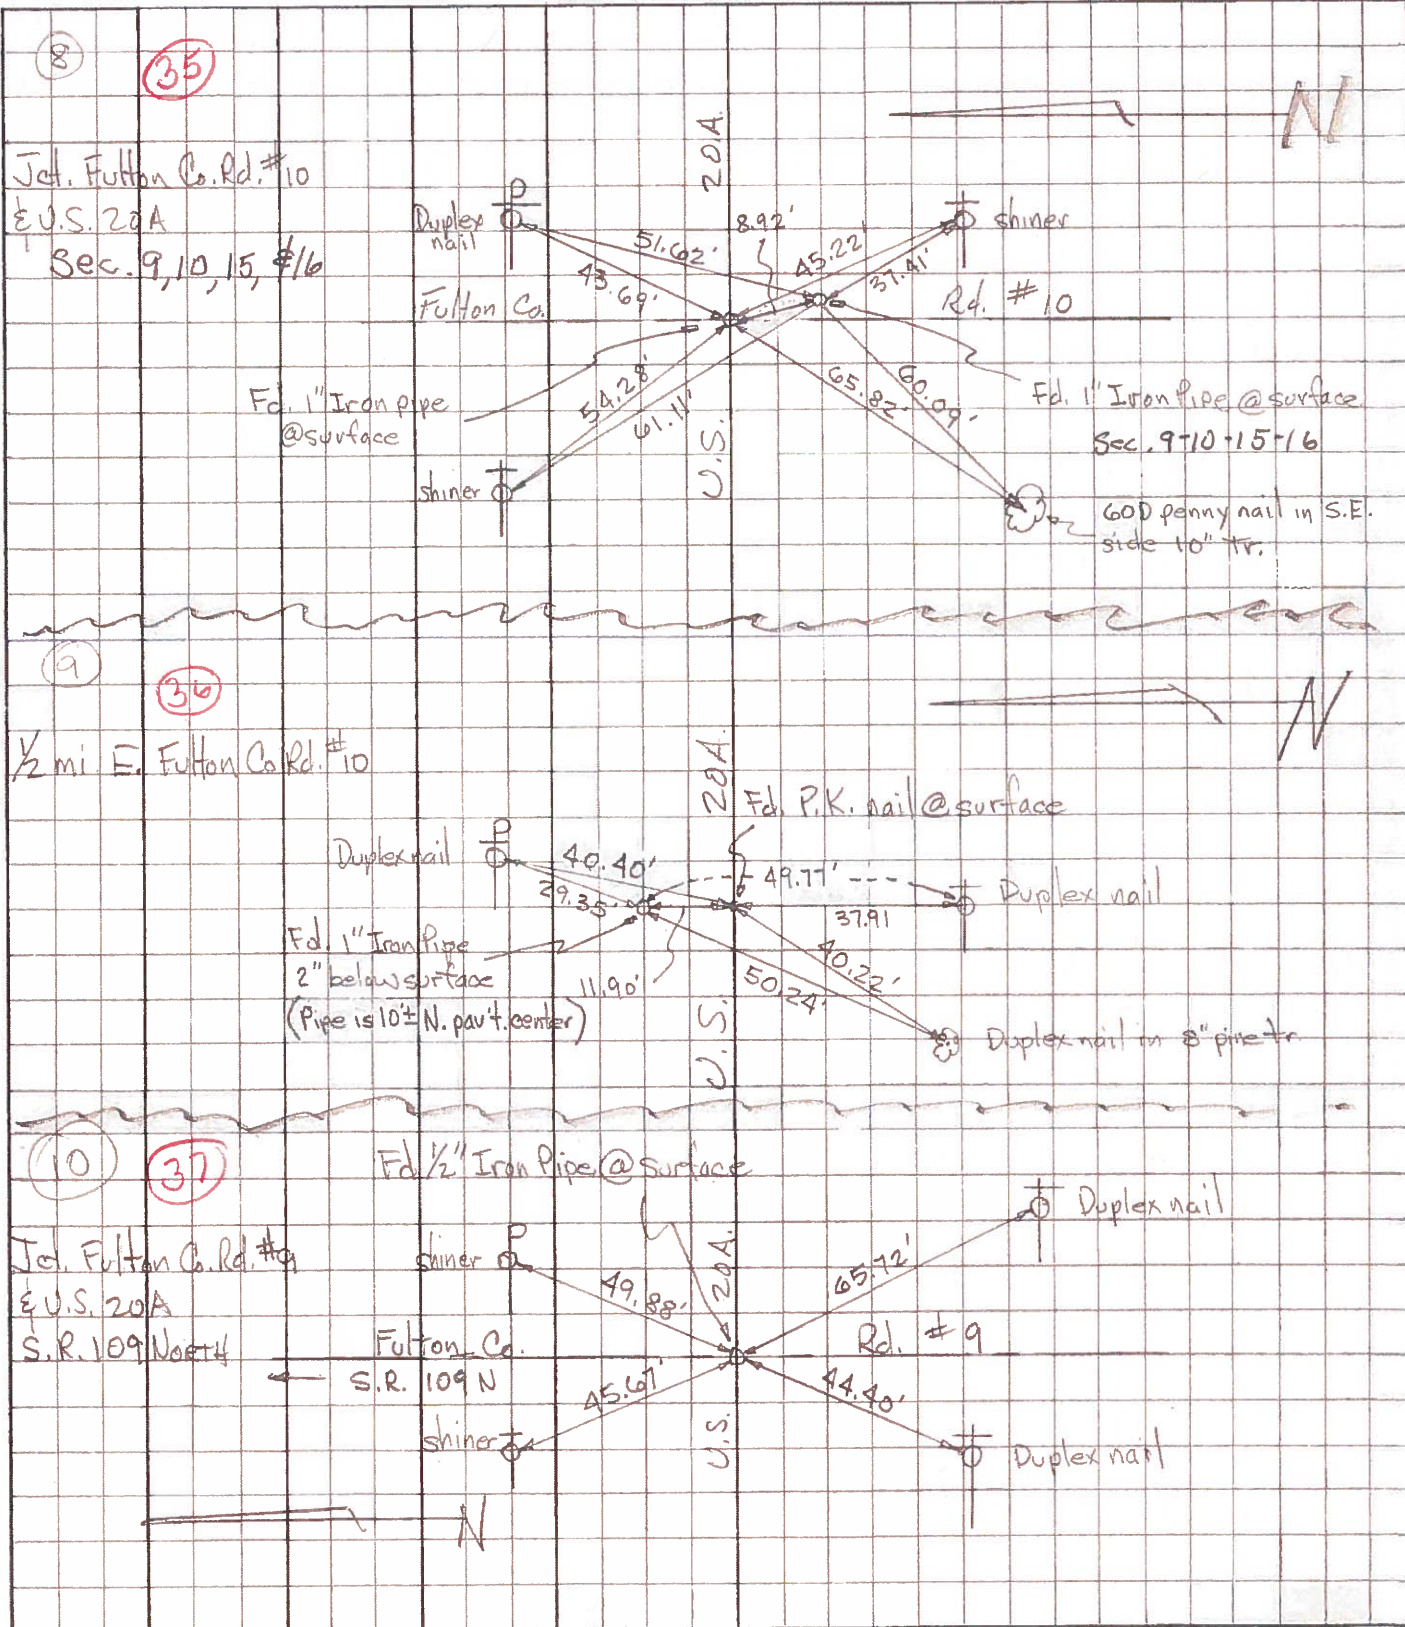 8
35
N
Jct. Fulton Co. Rd. #10
& U.S. 20A
Sec. 9, 10, 15, & 16
20A.
P
Duplex
nail
51.62'
8.92'
45.22'
shiner
43.69'
37.41'
Fulton Co.
Rd. #10
Fd. 1" Iron pipe
@surface
54.28'
61.11'
65.82'
60.09'
Fd. 1" Iron Pipe @ surface
Sec. 9-10-15-16
U.S.
shiner
60D penny nail in S.E.
side 10" tr.
9
36
N
1/2 mi E. Fulton Co Rd. #10
20A.
Fd. P.K. nail @ surface
P
Duplex nail
40.40'
49.77'
Duplex nail
29.35'
37.91
Fd. 1" Iron Pipe
2" below surface
(Pipe is 10'± N. pav't. center)
11.90'
40.22'
50.24'
U.S.
Duplex nail in 8" pine tr.
10
37
Fd 1/2" Iron Pipe @ surface
Duplex nail
Jct. Fulton Co. Rd. #9
& U.S. 20A
S.R. 109 NORTH
P
shiner
20A.
49.88'
65.72'
Fulton Co.
Rd. #9
S.R. 109 N
45.67'
44.40'
shiner
U.S.
Duplex nail
N